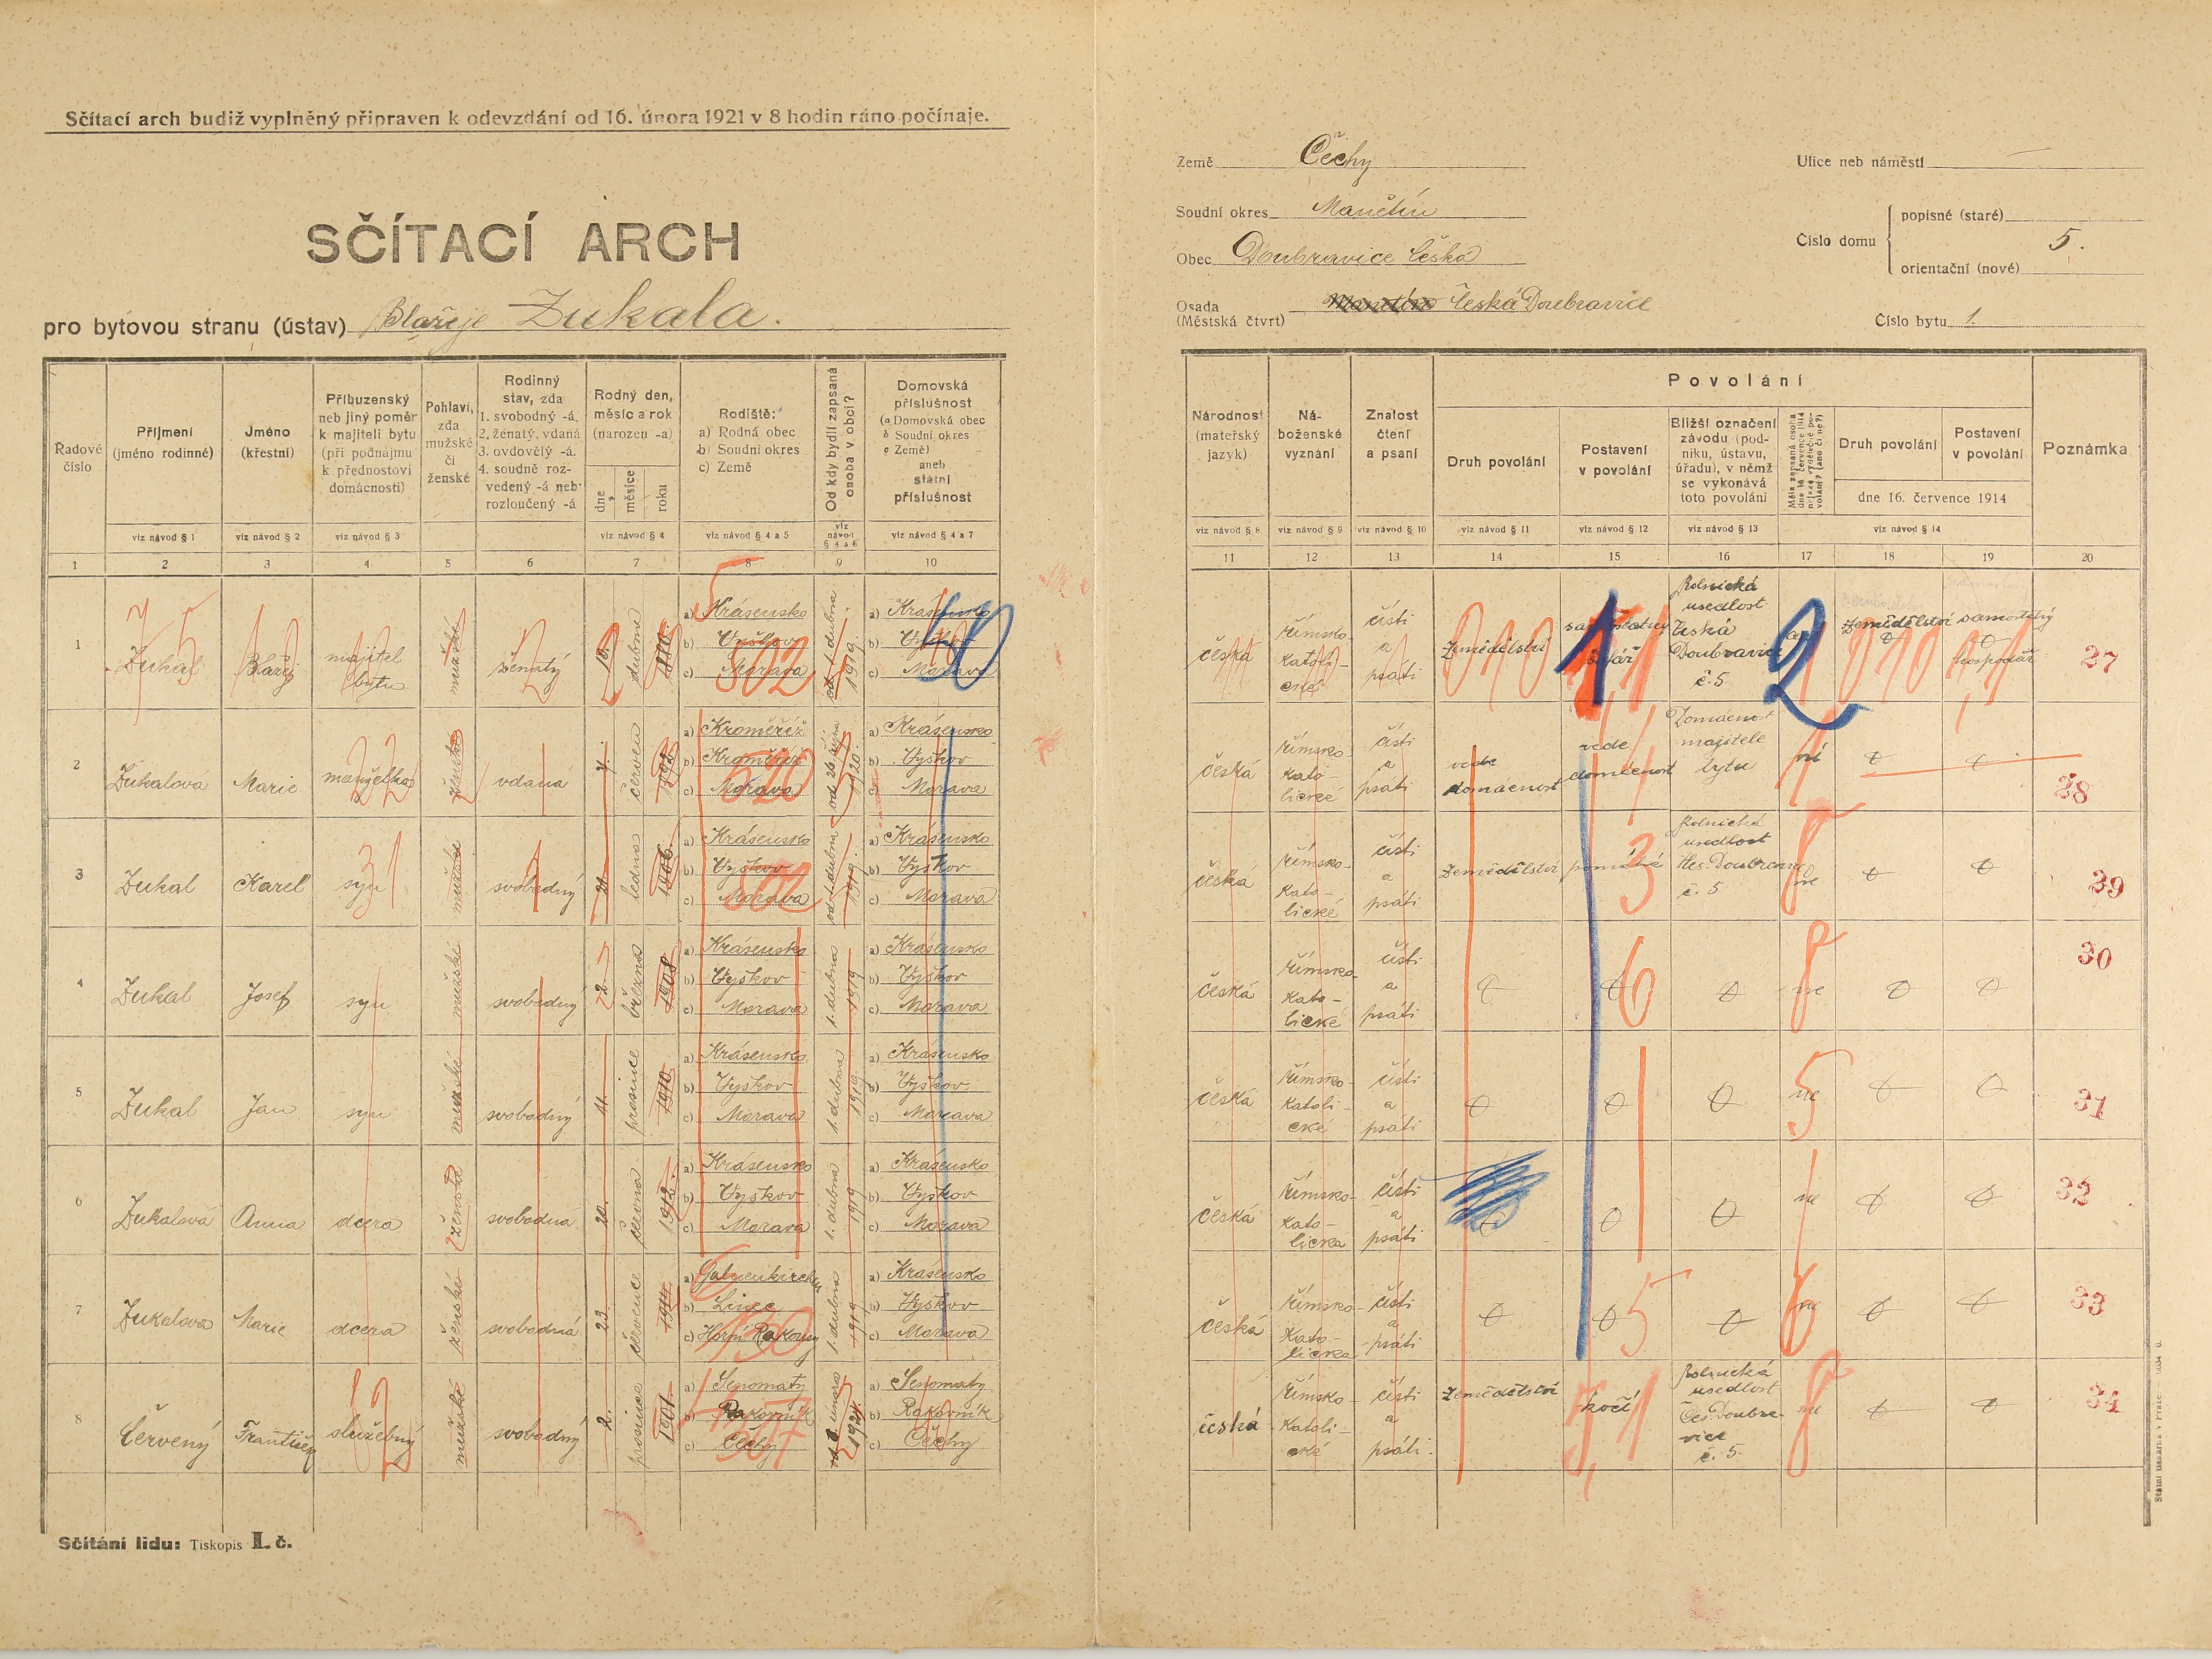 Sčítací arch budiž vyplněný připraven k odevzdání od 16. února 1921 v 8 hodin ráno počínaje.
SČÍTACÍ ARCH
pro bytovou stranu (ústav) Blažeje Zukala.
Země Čechy
Soudní okres Manětín
Obec Doubravice Česká
Osada Manětín Česká Doubravice
(Městská čtvrt)
Ulice neb náměstí
Číslo domu
popisné (staré)
5.
orientační (nové)
Číslo bytu 1.
Řadové číslo
Příjmení (jméno rodinné)
Jméno (křestní)
Příbuzenský neb jiný poměr k majiteli bytu (při podnájmu k přednostovi domácnosti)
Pohlaví, zda mužské či ženské
Rodinný stav, zda 1. svobodný -á, 2. ženatý, vdaná 3. ovdovělý -á, 4. soudně rozvedený -á neb rozloučený -á
Rodný den, měsíc a rok (narozen -a)
dne
měsíce
roku
Rodiště:
a) Rodná obec
b) Soudní okres
c) Země
Od kdy bydlí zapsaná osoba v obci?
Domovská příslušnost
(a Domovská obec
b Soudní okres
c Země)
aneb státní příslušnost
viz návod § 1
viz návod § 2
viz návod § 3
viz návod § 4
viz návod § 4 a 5
viz návod § 4 a 6
viz návod § 4 a 7
1 2 3 4 5 6 7 8 9 10
Národnost (mateřský jazyk)
Náboženské vyznání
Znalost čtení a psaní
Povolání
Druh povolání
Postavení v povolání
Bližší označení závodu (podniku, ústavu, úřadu), v němž se vykonává toto povolání
Druh povolání
Postavení v povolání
dne 16. července 1914
Poznámka
viz návod § 8
viz návod § 9
viz návod § 10
viz návod § 11
viz návod § 12
viz návod § 13
viz návod § 14
11 12 13 14 15 16 17 18 19 20
1 Zukal Blažej majitel bytu mužské ženatý dubna
a) Krásensko
b) Vyškov
c) Morava
od 1 dubna 1919.
a) Krásensko
b) Vyškov
c) Morava
česká římsko-katolické čísti a psáti Zemědělství
Rolnická usedlost Česká Doubravice č. 5
Zemědělství samostatný hospodář
27
2 Zukalová Marie manželka ženské vdaná 7. červen
a) Kroměříž
b) Kroměříž
c) Morava
1920.
a) Krásensko
b) Vyškov
c) Morava
česká římsko-katolické čísti a psáti vede domácnost vede domácnost
Domácnost majitele bytu
28
3 Zukal Karel syn mužské svobodný ledna 1906.
a) Krásensko
b) Vyškov
c) Morava
od 1 dubna 1919.
a) Krásensko
b) Vyškov
c) Morava
česká římsko-katolické čísti a psáti Zemědělství pomáhá
Rolnická usedlost č. 5
ne
29
4 Zukal Josef syn mužské svobodný 22. března 1908
a) Krásensko
b) Vyškov
c) Morava
1. dubna 1919
a) Krásensko
b) Vyškov
c) Morava
česká římsko-katolické čísti a psáti
ne
30
5 Zukal Jan syn mužské svobodný prosince 1910
a) Krásensko
b) Vyškov
c) Morava
1. dubna 1919
a) Krásensko
b) Vyškov
c) Morava
česká římsko-katolické čísti a psáti
ne
31
6 Zukalová Anna dcera ženská svobodná 20. června 1912
a) Krásensko
b) Vyškov
c) Morava
1. dubna 1919
a) Krásensko
b) Vyškov
c) Morava
česká římsko-katolická čísti a psáti
ne
32
7 Zukalova Marie dcera ženské svobodná 23. července 1914
b) Linec
1. dubna 1919
a) Krasensko
b) Vyškov
c) Morava
česká římsko-katolicka čísti a psáti
ne
33
8 Červený František služebný mužské svobodný 2. prosince 1901.
a) Senomaty
b) Rakovník
c) Čechy
a) Senomaty
b) Rakovník
c) Čechy
česká římsko-katolické čísti a psáti. Zemědělství kočí
Rolnická usedlost Čes. Doubravice č. 5
ne
34
Sčítání lidu: Tiskopis I. č.